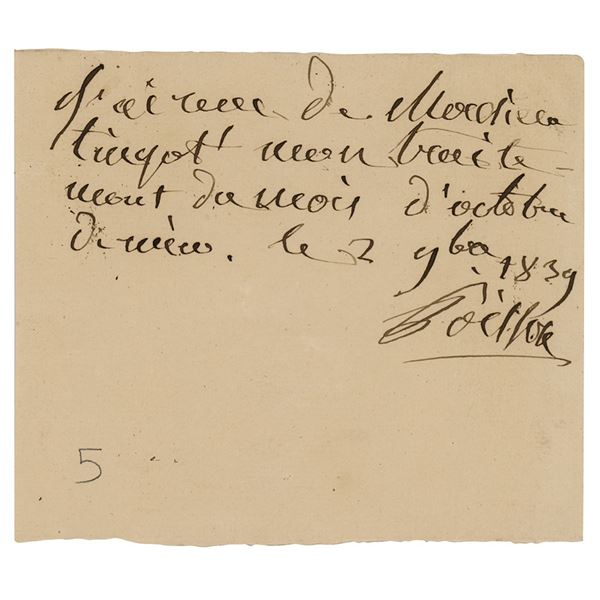 J'ai reçu de Monsieur
tingot mon traite-
ment du mois d'octobre
dernier. le 2 9bre 1839
Poisson
5